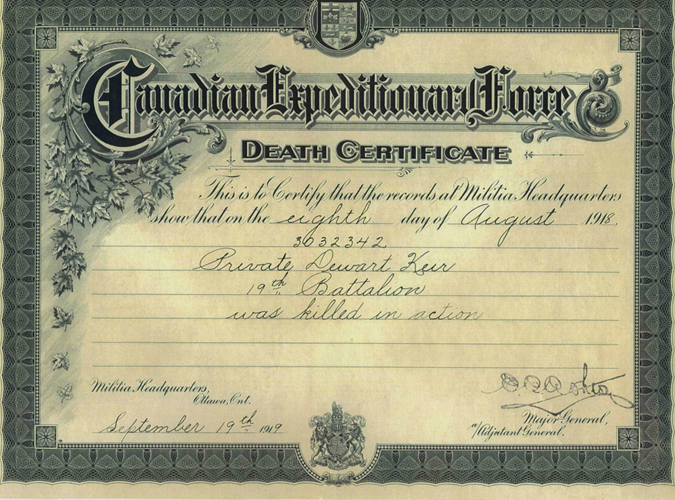 Canadian Expeditionary Force
DEATH CERTIFICATE
This is to Certify that the records at Militia Headquarters
show that on the eighth day of August 1918
3032342
Private Dewart Keir
19th Battalion
was killed in action
Militia Headquarters,
Ottawa, Ont.
September 19th 1919
Major General,
Adjutant General.